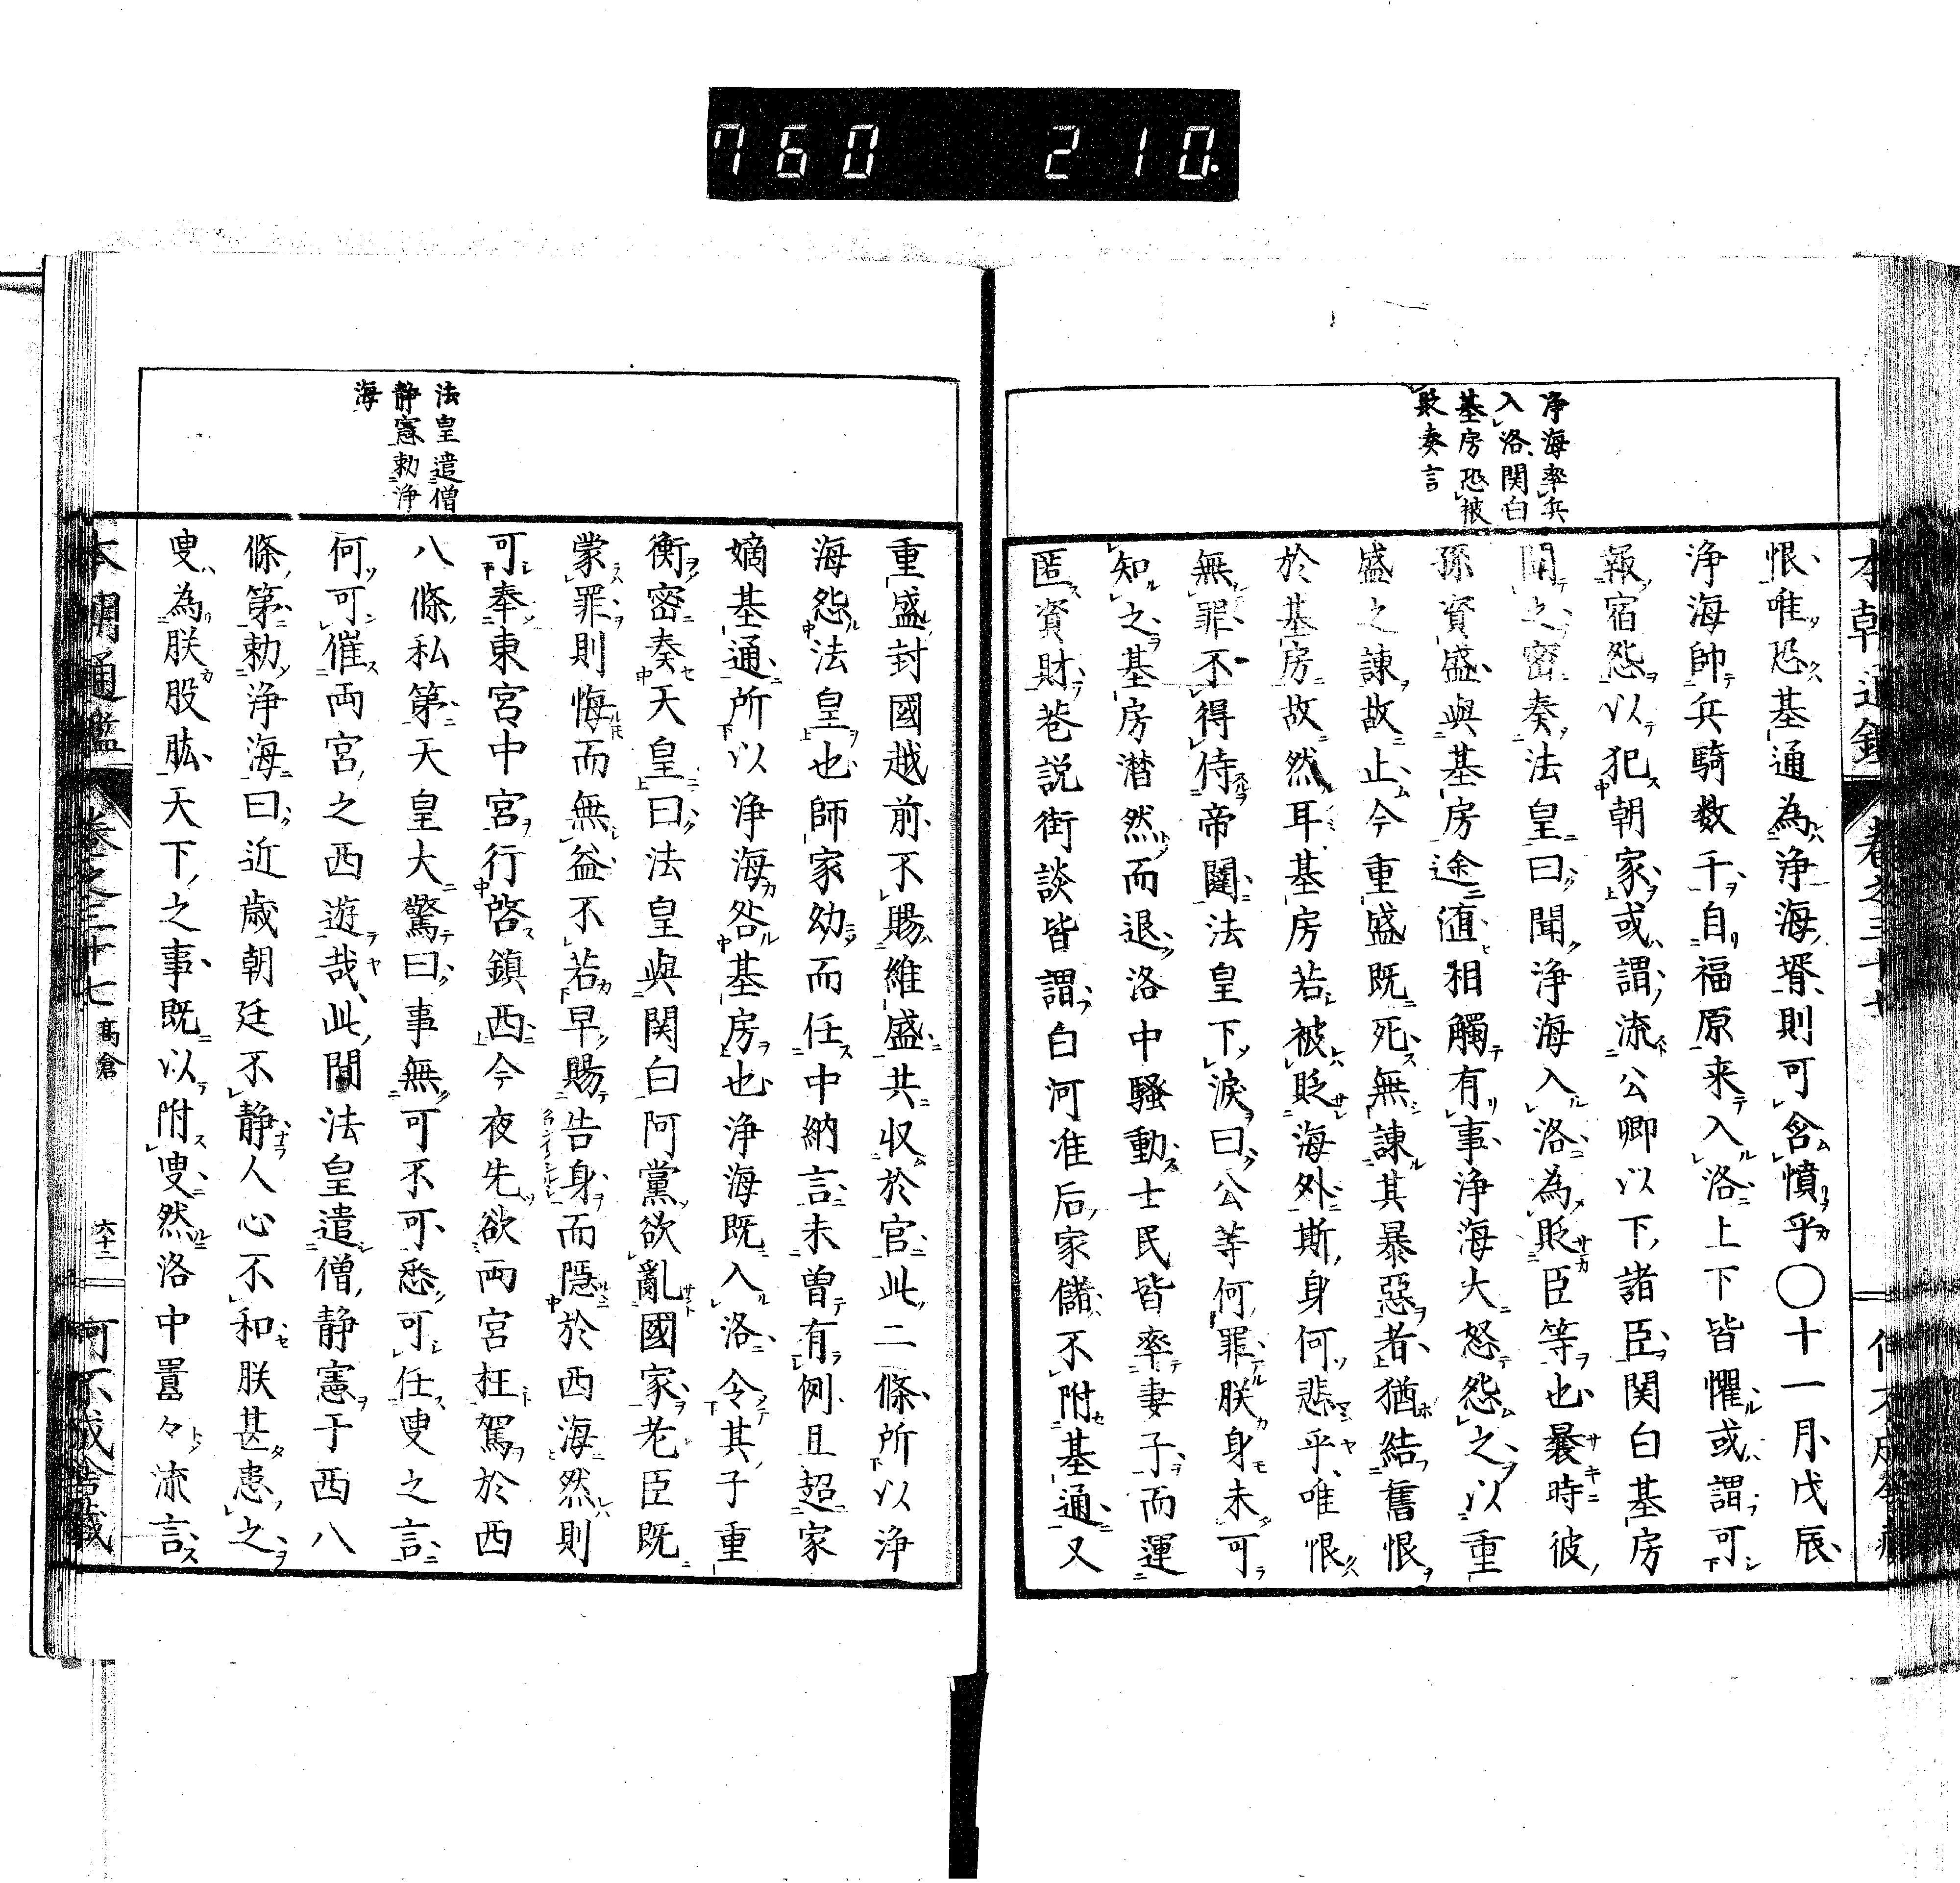 760 210.
浄海率兵
入洛関白
基房恐被
貶奏言
恨唯恐基通為浄海壻則可含憤乎〇十一月戊辰
浄海帥兵騎数千自福原来入洛上下皆懼或謂可
報宿怨以犯朝家或謂流公卿以下諸臣関白基房
聞之密奏法皇曰聞浄海入洛為貶臣等也曩時彼
孫資盛與基房途値相觸有事浄海大怒怨之以重
盛之諌故止今重盛既死無諌其暴惡者猶結舊恨
於基房故然耳基房若被貶海外斯身何悲乎唯恨
無罪不得侍帝闥法皇下涙曰公等何罪朕身未可
知之基房潜然而退洛中騷動士民皆率妻子而運
匿資財巷説街談皆謂白河准后家儲不附基通又
法皇遣僧
静憲勅浄
海
重盛封國越前不賜維盛共収於官此二條所以浄
海怨法皇也師家幼而任中納言未曽有例且超家
嫡基通所以浄海咎基房也浄海既入洛令其子重
衡密奏天皇曰法皇與関白阿黨欲亂國家老臣既
蒙罪則悔而無益不若早賜告身而隠於西海然則
可奉東宮中宮行啓鎮西今夜先欲両宮枉駕於西
八條私第天皇大驚曰事無可不可悉可任叟之言
何可催両宮之西遊哉此間法皇遣僧静憲于西八
條第勅浄海曰近歳朝廷不静人心不和朕甚患之
叟為朕股肱天下之事既以附叟然洛中囂々流言
本朝通鑑 巻之三十七 高倉 六十二